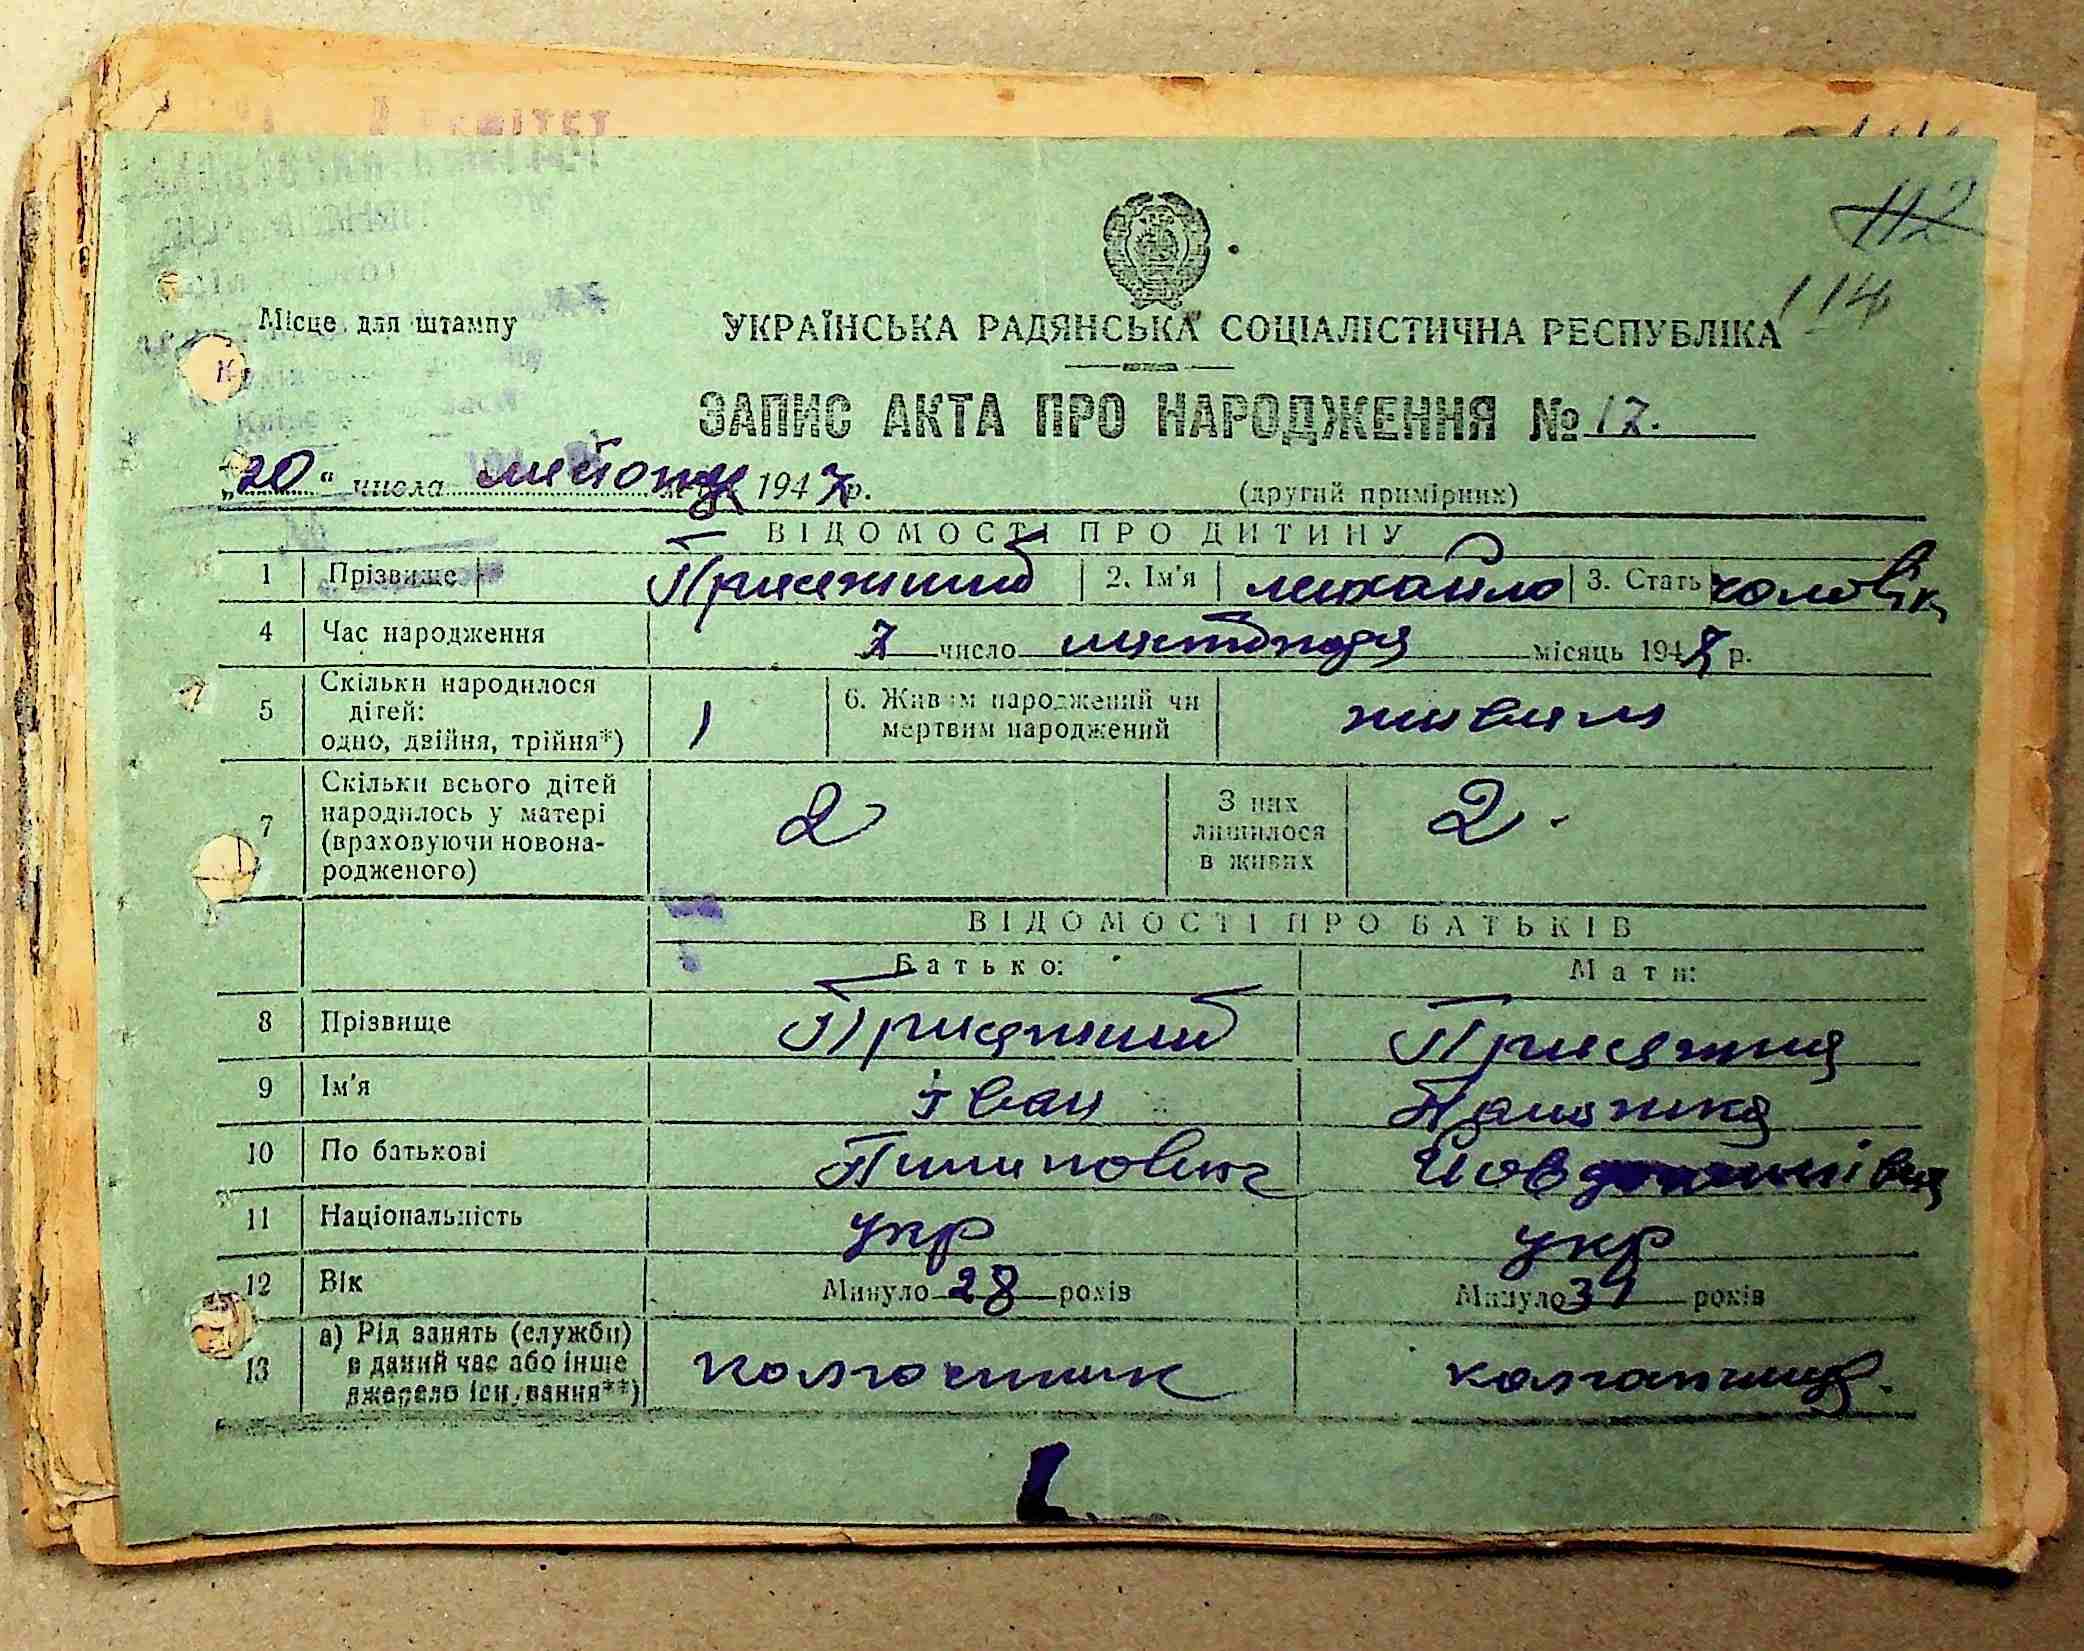 112
114
Місце для штампу
УКРАЇНСЬКА РАДЯНСЬКА СОЦІАЛІСТИЧНА РЕСПУБЛІКА
ЗАПИС АКТА ПРО НАРОДЖЕННЯ № 17.
„20“ числа 1947 р.
(другий примірник)
ВІДОМОСТІ ПРО ДИТИНУ
1 Прізвище Присяжний 2. Ім'я Михайло 3. Стать чоловік
4 Час народження 7 число листопада місяць 1947 р.
5 Скільки народилося дітей: одно, двійня, трійня*) 1 6. Живим народжений чи мертвим народжений живим
7 Скільки всього дітей народилось у матері (враховуючи новонародженого) 2 З них лишилося в живих 2.
ВІДОМОСТІ ПРО БАТЬКІВ
Батько: Мати:
8 Прізвище Присяжний Присяжна
9 Ім'я Іван Параска
10 По батькові Пилипович
11 Національність укр укр
12 Вік Минуло 28 років Минуло 31 років
13 а) Рід занять (служби) в даний час або інше джерело існування**) колгоспник колгоспниця.